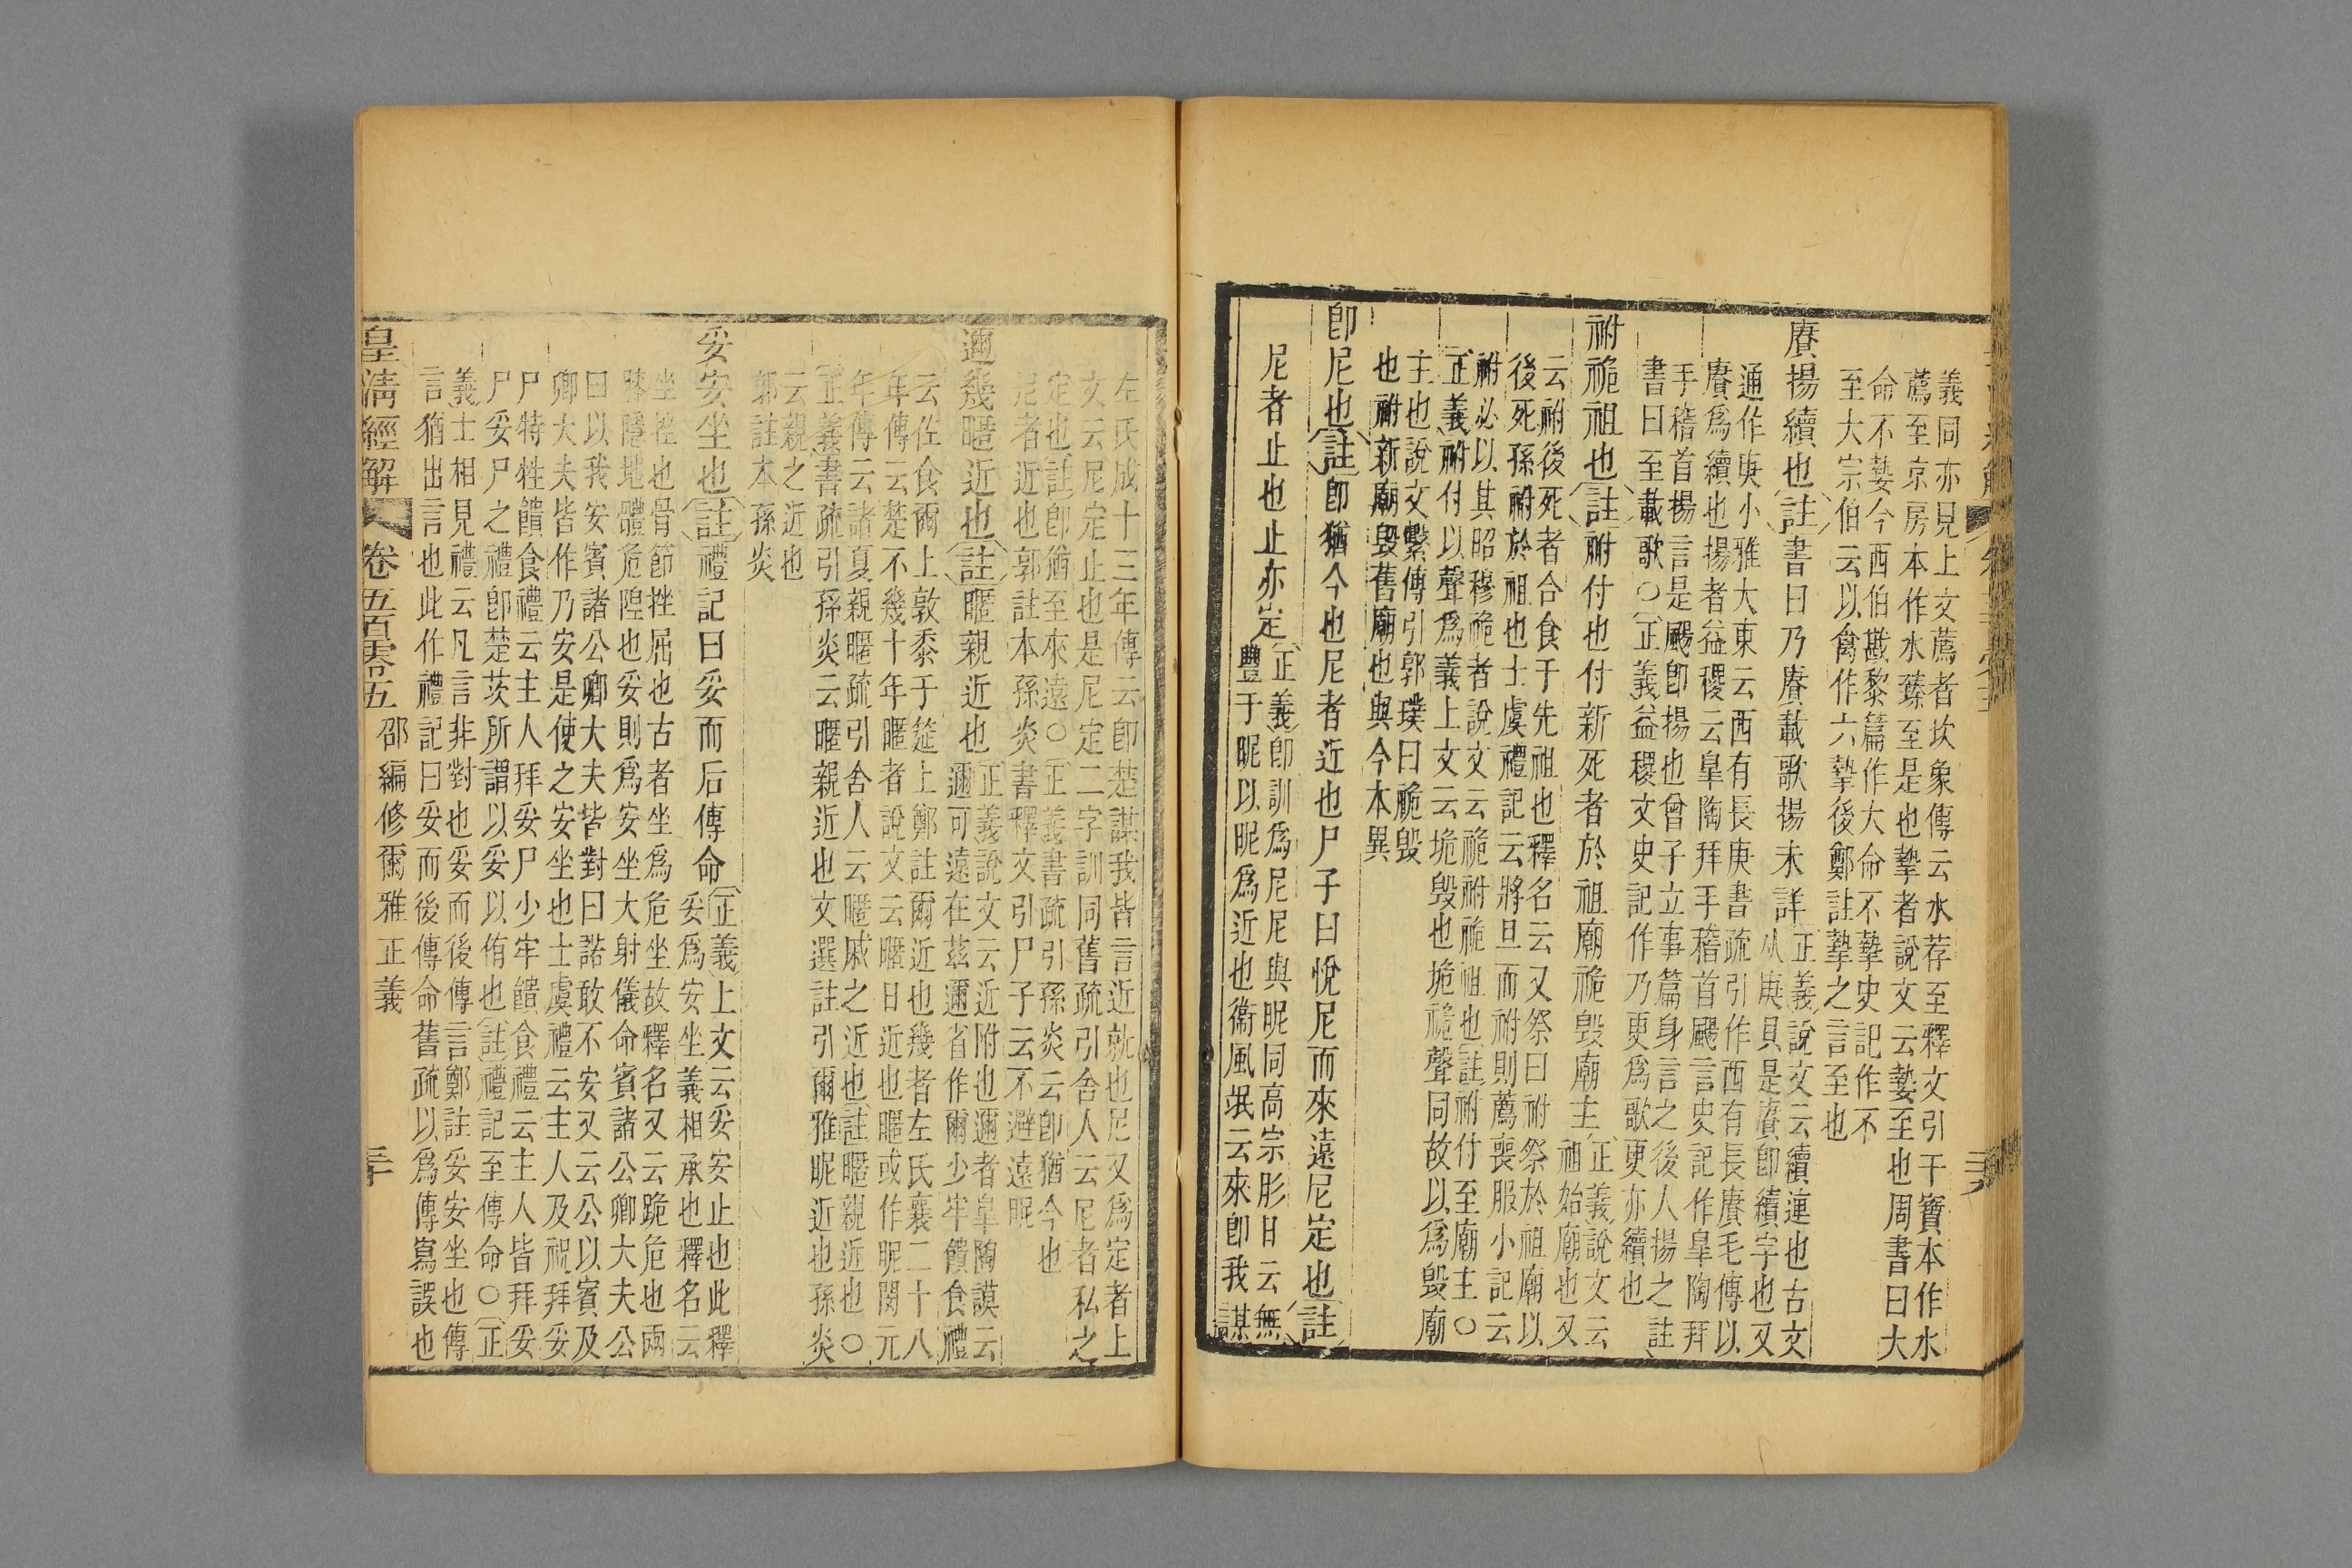 義同亦見上文薦者坎象傳云水荐至釋文引干寶本作水
薦至京房本作水臻至是也摯者說文云㙯至也周書曰大
命不㙯今西伯戡黎篇作大命不摯史記作不
至大宗伯云以禽作六摯後鄭註摯之言至也
賡揚續也註書曰乃賡載歌揚未詳
正義說文云續連也古文
从庚貝是賡卽續字也又
通作庚小雅大東云西有長庚書疏引作西有長賡毛傳以
賡爲續也揚者益稷云皐陶拜手稽首颺言史記作皐陶拜
手稽首揚言是颺卽揚也曾子立事篇身言之後人揚之註
書曰至載歌○正義益稷文史記作乃更爲歌更亦續也
祔祪祖也註祔付也付新死者於祖廟祪毀廟主
正義說文云
祖始廟也又
云祔後死者合食于先祖也釋名云又祭曰祔祭於祖廟以
後死孫祔於祖也士虞禮記云將旦而祔則薦喪服小記云
祔必以其昭穆祪者說文云祪祔祪祖也註祔付至廟主○
正義祔付以聲爲義上文云垝毀也垝祪聲同故以爲毀廟
主也說文繫傳引郭璞曰祪毀
也祔新廟毀舊廟也與今本異
卽尼也註卽猶今也尼者近也尸子曰悅尼而來遠尼定也註
尼者止也止亦定
正義卽訓爲尼尼與昵同高宗肜日云無
豐于昵以昵爲近也衞風氓云來卽我謀
左氏成十三年傳云卽楚謀我皆言近就也尼又爲定者上
文云尼定止也是尼定二字訓同舊疏引舍人云尼者私之
定也註卽猶至來遠○正義書疏引孫炎云卽猶今也
尼者近也郭註本孫炎書釋文引尸子云不避遠昵
邇幾暱近也註暱親近也
正義說文云近附也邇者皐陶謨云
邇可遠在茲邇省作爾少牢饋食禮
云佐食爾上敦黍于筵上鄭註爾近也幾者左氏襄二十八
年傳云楚不幾十年暱者說文云暱日近也暱或作昵閔元
年傳云諸夏親暱疏引舍人云暱戚之近也註暱親近也○
正義書疏引孫炎云暱親近也文選註引爾雅昵近也孫炎
云親之近也
郭註本孫炎
妥安坐也註禮記曰妥而后傳命
正義上文云妥安止也此釋
妥爲安坐義相承也釋名云
坐挫也骨節挫屈也古者坐爲危坐故釋名又云跪危也兩
膝隱地體危隉也妥則爲安坐大射儀命賓諸公卿大夫公
曰以我安賓諸公卿大夫皆對曰諾敢不安又云公以賓及
卿大夫皆作乃安是使之安坐也士虞禮云主人及祝拜妥
尸特牲饋食禮云主人拜妥尸少牢饋食禮云主人皆拜妥
尸妥尸之禮卽楚茨所謂以妥以侑也註禮記至傳命○正
義士相見禮云凡言非對也妥而後傳言鄭註妥安坐也傳
言猶出言也此作禮記曰妥而後傳命舊疏以爲傳寫誤也
皇清經解
卷五百零五
邵編修爾雅正義
三十